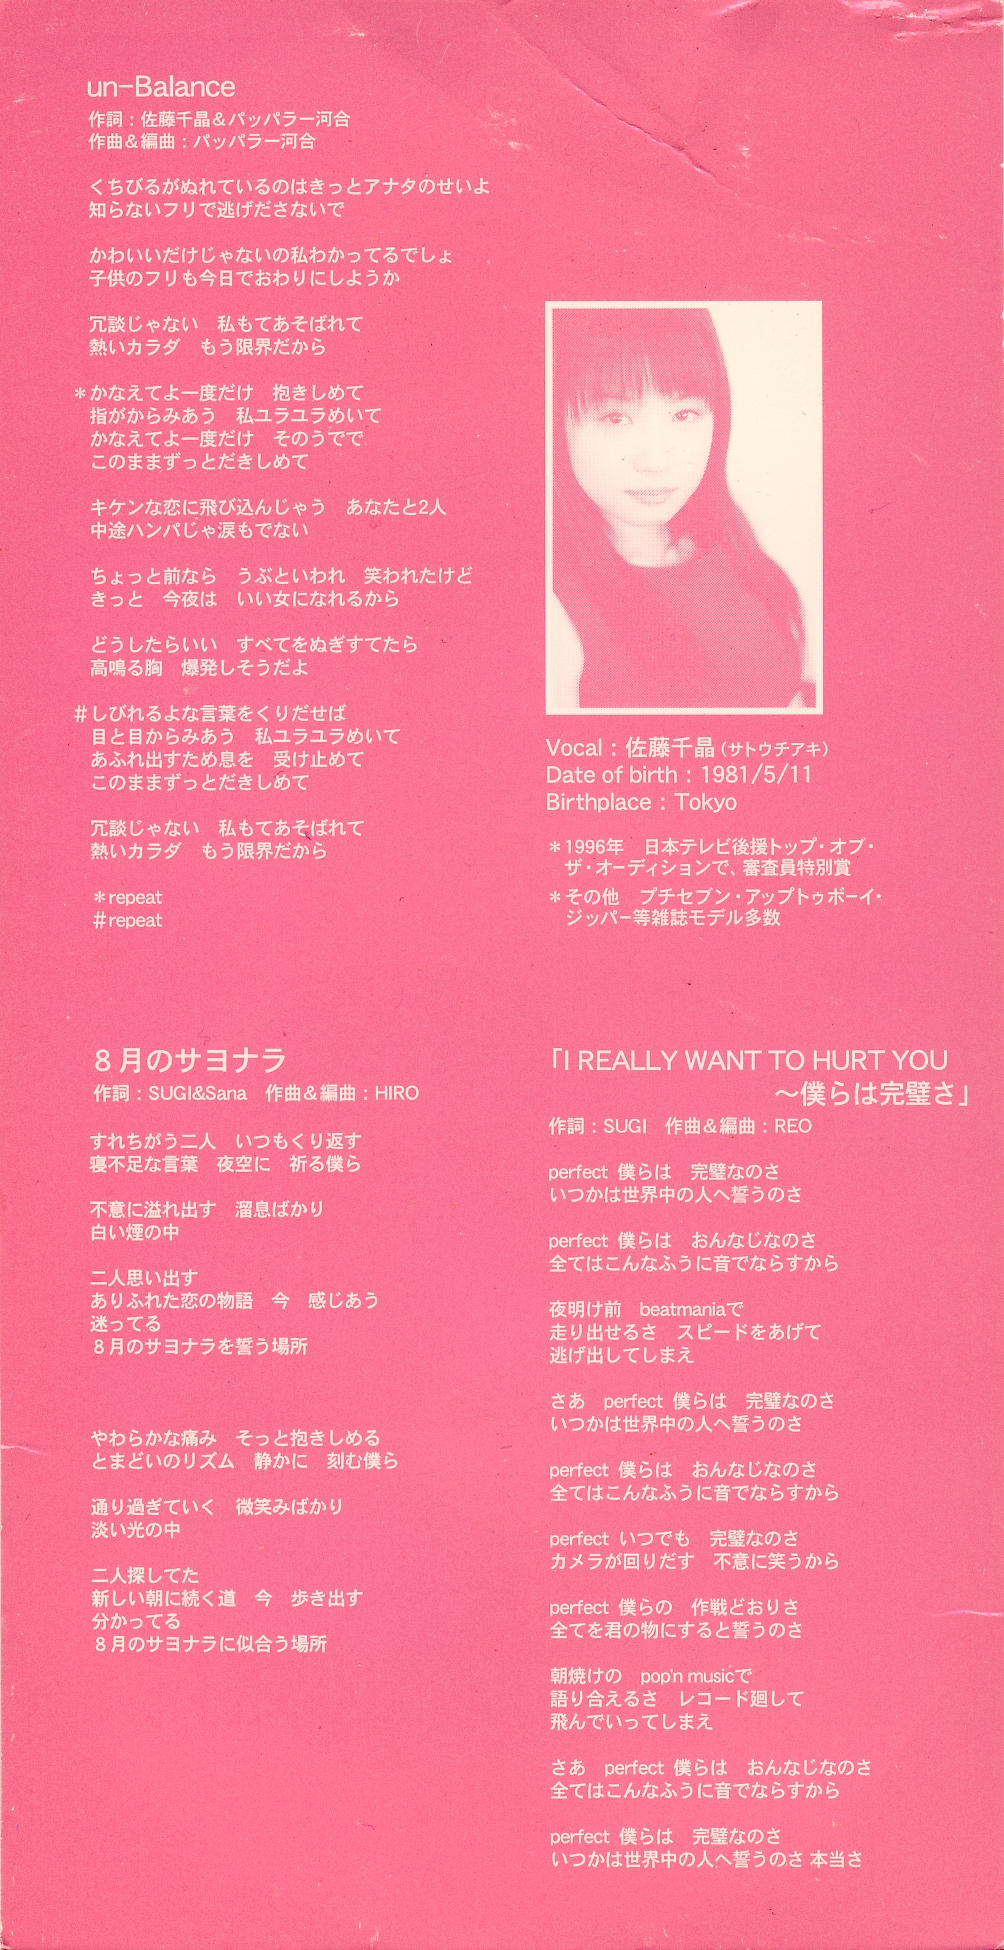 un-Balance
作詞：佐藤千晶＆パッパラー河合
作曲＆編曲：パッパラー河合
くちびるがぬれているのはきっとアナタのせいよ
知らないフリで逃げださないで
かわいいだけじゃないの私わかってるでしょ
子供のフリも今日でおわりにしようか
冗談じゃない　私もてあそばれて
熱いカラダ　もう限界だから
＊かなえてよ一度だけ　抱きしめて
指がからみあう　私ユラユラめいて
かなえてよ一度だけ　そのうでで
このままずっとだきしめて
キケンな恋に飛び込んじゃう　あなたと2人
中途ハンパじゃ涙もでない
ちょっと前なら　うぶといわれ　笑われたけど
きっと　今夜は　いい女になれるから
どうしたらいい　すべてをぬぎすてたら
高鳴る胸　爆発しそうだよ
＃しびれるよな言葉をくりだせば
目と目からみあう　私ユラユラめいて
あふれ出すため息を　受け止めて
このままずっとだきしめて
冗談じゃない　私もてあそばれて
熱いカラダ　もう限界だから
＊repeat
＃repeat
Vocal：佐藤千晶（サトウチアキ）
Date of birth：1981/5/11
Birthplace：Tokyo
＊1996年　日本テレビ後援トップ・オブ・
ザ・オーディションで、審査員特別賞
＊その他　プチセブン・アップトゥボーイ・
ジッパー等雑誌モデル多数
８月のサヨナラ
作詞：SUGI&Sana　作曲＆編曲：HIRO
すれちがう二人　いつもくり返す
寝不足な言葉　夜空に　祈る僕ら
不意に溢れ出す　溜息ばかり
白い煙の中
二人思い出す
ありふれた恋の物語　今　感じあう
迷ってる
８月のサヨナラを誓う場所
やわらかな痛み　そっと抱きしめる
とまどいのリズム　静かに　刻む僕ら
通り過ぎていく　微笑みばかり
淡い光の中
二人探してた
新しい朝に続く道　今　歩き出す
分かってる
８月のサヨナラに似合う場所
「I REALLY WANT TO HURT YOU
～僕らは完璧さ」
作詞：SUGI　作曲＆編曲：REO
perfect 僕らは　完璧なのさ
いつかは世界中の人へ誓うのさ
perfect 僕らは　おんなじなのさ
全てはこんなふうに音でならすから
夜明け前　beatmaniaで
走り出せるさ　スピードをあげて
逃げ出してしまえ
さあ　perfect 僕らは　完璧なのさ
いつかは世界中の人へ誓うのさ
perfect 僕らは　おんなじなのさ
全てはこんなふうに音でならすから
perfect いつでも　完璧なのさ
カメラが回りだす　不意に笑うから
perfect 僕らの　作戦どおりさ
全てを君の物にすると誓うのさ
朝焼けの　pop'n musicで
語り合えるさ　レコード廻して
飛んでいってしまえ
さあ　perfect 僕らは　おんなじなのさ
全てはこんなふうに音でならすから
perfect 僕らは　完璧なのさ
いつかは世界中の人へ誓うのさ 本当さ